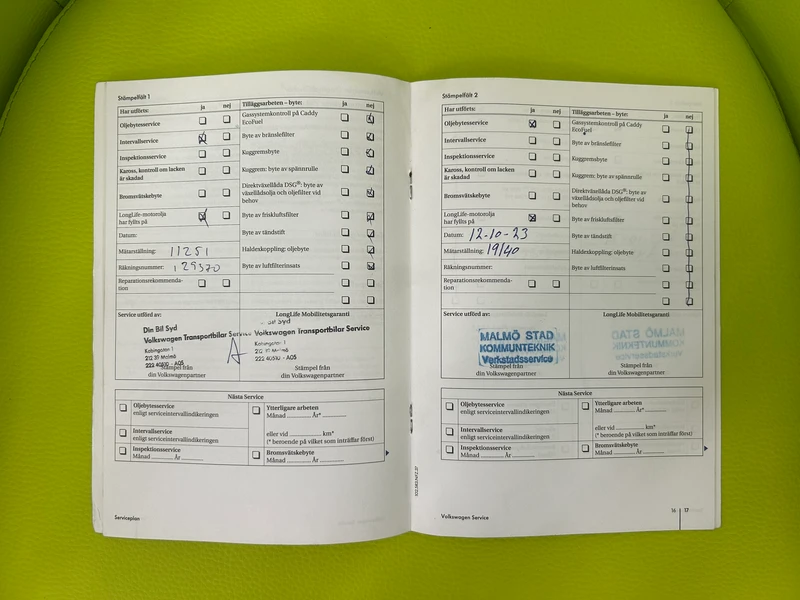 Stämpelfält 1
Har utförts: ja nej
Oljebytesservice
Intervallservice
Inspektionsservice
Kaross, kontroll om lacken
är skadad
Bromsvätskebyte
LongLife-motorolja
har fyllts på
Datum:
Mätarställning: 11251
Räkningsnummer: 129370
Reparationsrekommenda-
tion
Tilläggsarbeten – byte: ja nej
Gassystemkontroll på Caddy
EcoFuel
Byte av bränslefilter
Kuggremsbyte
Kuggrem: byte av spännrulle
Direktväxellåda DSG®: byte av
växellådsolja och oljefilter vid
behov
Byte av friskluftsfilter
Byte av tändstift
Haldexkoppling: oljebyte
Byte av luftfilterinsats
Service utförd av:
Din Bil Syd
Volkswagen Transportbilar Service
Kabingatan 1
212 39 Malmö
222 40510 - A05
Stämpel från
din Volkswagenpartner
LongLife Mobilitetsgaranti
Bil Syd
Volkswagen Transportbilar Service
Kabingatan 1
212 39 Malmö
222 40510 - A05
Stämpel från
din Volkswagenpartner
Nästa Service
Oljebytesservice
enligt serviceintervallindikeringen
Intervallservice
enligt serviceintervallindikeringen
Inspektionsservice
Månad År
Ytterligare arbeten
Månad År*
eller vid km*
(* beroende på vilket som inträffar först)
Bromsvätskebyte
Månad År
Serviceplan
Stämpelfält 2
Har utförts: ja nej
Oljebytesservice
Intervallservice
Inspektionsservice
Kaross, kontroll om lacken
är skadad
Bromsvätskebyte
LongLife-motorolja
har fyllts på
Datum: 12-10-23
Mätarställning: 19140
Räkningsnummer:
Reparationsrekommenda-
tion
Tilläggsarbeten – byte: ja nej
Gassystemkontroll på Caddy
EcoFuel
Byte av bränslefilter
Kuggremsbyte
Kuggrem: byte av spännrulle
Direktväxellåda DSG®: byte av
växellådsolja och oljefilter vid
behov
Byte av friskluftsfilter
Byte av tändstift
Haldexkoppling: oljebyte
Byte av luftfilterinsats
Service utförd av:
MALMÖ STAD
KOMMUNTEKNIK
Verkstadsservice
Stämpel från
din Volkswagenpartner
LongLife Mobilitetsgaranti
Stämpel från
din Volkswagenpartner
Nästa Service
Oljebytesservice
enligt serviceintervallindikeringen
Intervallservice
enligt serviceintervallindikeringen
Inspektionsservice
Månad År
Ytterligare arbeten
Månad År*
eller vid km*
(* beroende på vilket som inträffar först)
Bromsvätskebyte
Månad År
Volkswagen Service
16 17